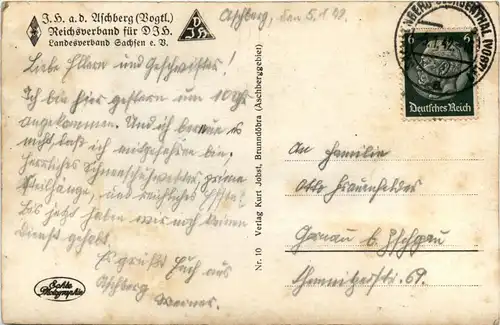 J.H. a.d. Aschberg (Vogtl.)
Reichsverband für DJH.
Landesverband Sachsen e. V.
DJH
Aschberg, den 5.1.42.
Liebe Eltern und Geschwister!
Ich bin hier gestern um 10 Uhr
angekommen. Und ich bereue es
nicht, daß ich mitgefahren bin.
Herrliches Schneeschuhwetter, prima
Steilhänge, und reichliches Essen!
Bis jetzt haben wir noch keinen
Dienst gehabt.
Es grüßt Euch aus
Aschberg
Werner.
Echte
Photographie
Nr. 10 Verlag Kurt Jobst, Brunndöbra (Aschberggebiet)
6
Deutsches Reich
An Familie
Otto
b. Zschopau
Chemnitzerstr. 69.